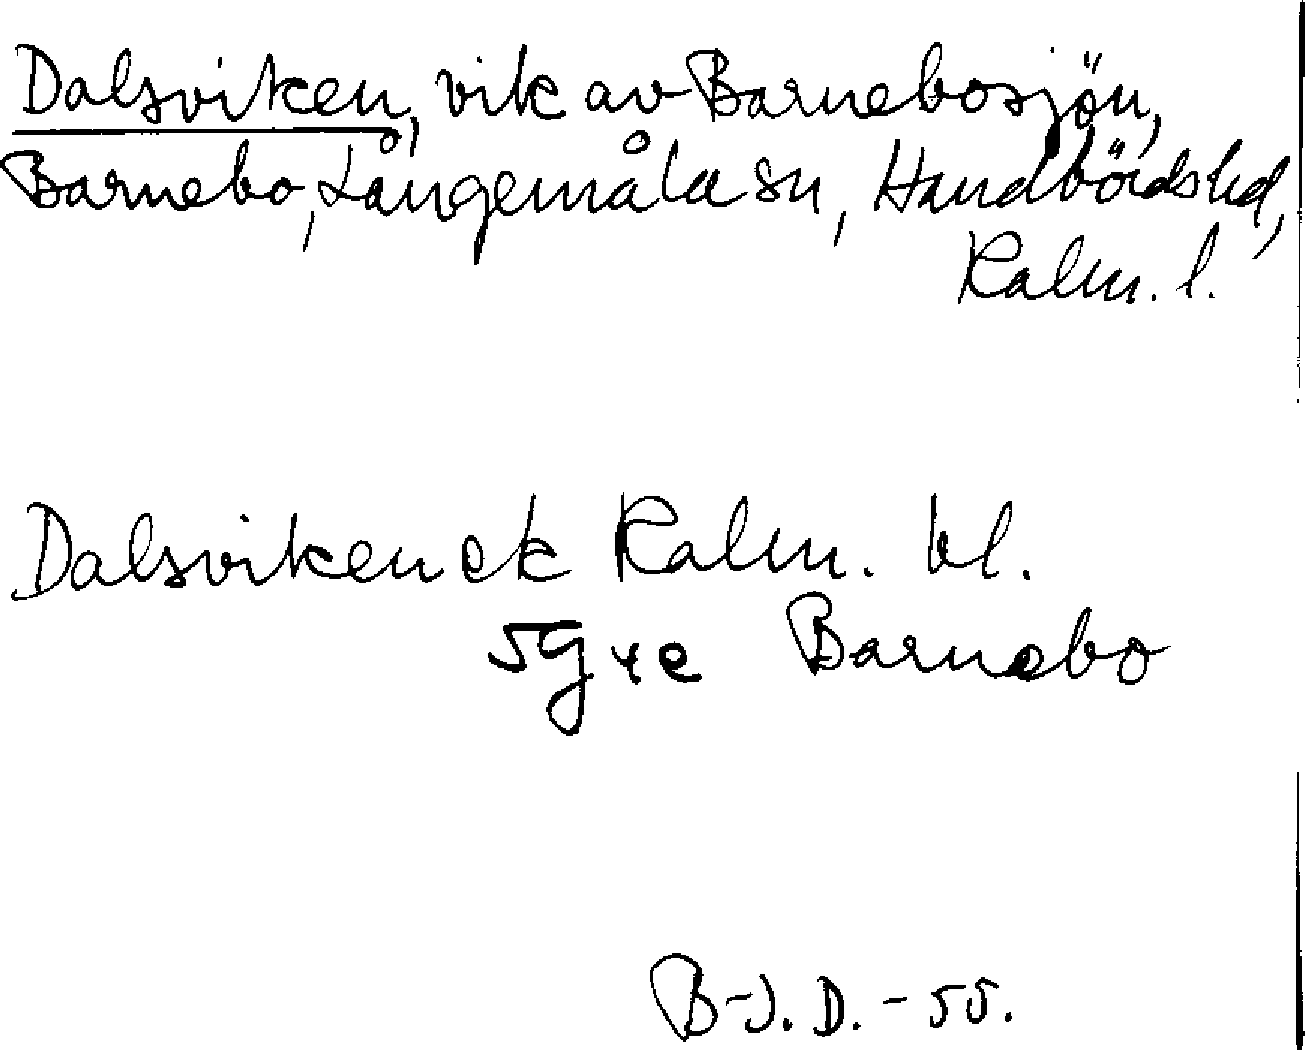 Dalsviken, vik av Barnebosjön,
Barnebo, Långemåla sn, Handbörds hd,
Kalm. l.
Dalsviken ek Kalm. bl.
5g4e Barnebo
B-J. D. - 55.